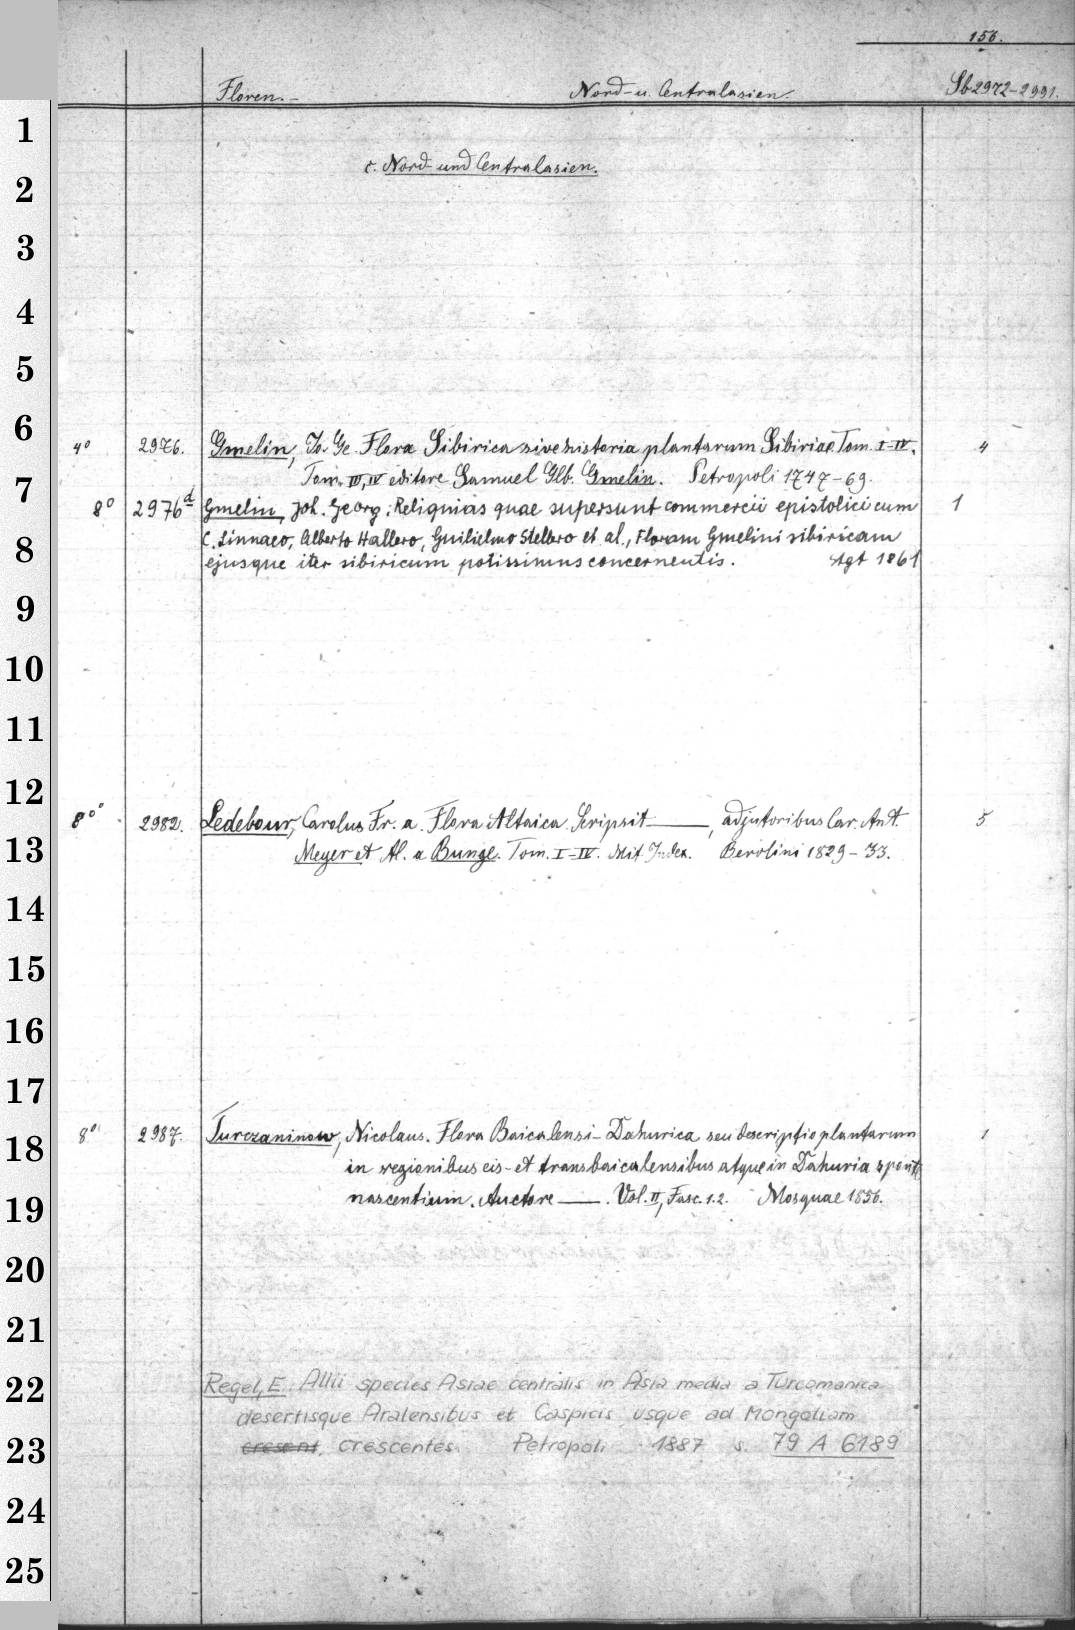 156.
Floren.- Nord- u. Centralasien. Sb 2972-2991.
c. Nord- und Centralasien.
4° 2976. Gmelin, Jo. Ge. Flora Sibirica sive historia plantarum Sibiriae. Tom. I-IV. 4
Tom. III, IV editore Samuel Glb. Gmelin. Petropoli 1747-69.
8° 2976d Gmelin, Joh. Georg: Reliquias quae supersunt commercii epistolici cum 1
C. Linnaeo, Alberto Hallero, Guilielmo Stellero et al., Floram Gmelini sibiricam
ejusque iter sibiricum potissimus concernentis. Stgt 1861
8° 2982. Ledebour, Carolus Fr. a. Flora Altaica. Scripsit ——, adjutoribus Car. Ant. 5
Meyer et Al. a Bunge. Tom. I-IV. Mit Index. Berolini 1829-33.
8° 2987. Turczaninow, Nicolaus. Flora Baicalensi-Dahurica seu descriptio plantarum 1
in regionibus cis- et transbaicalensibus atque in Dahuria spont
nascentium. Auctore ——. Vol. II, Fasc. 1.2. Mosquae 1856.
Regel, E. Allii species Asiae centralis in Asia media a Turcomanica
desertisque Aralensibus et Caspicis usque ad Mongoliam
cresent, crescentes. Petropoli 1887 s. 79 A 6189
1
2
3
4
5
6
7
8
9
10
11
12
13
14
15
16
17
18
19
20
21
22
23
24
25